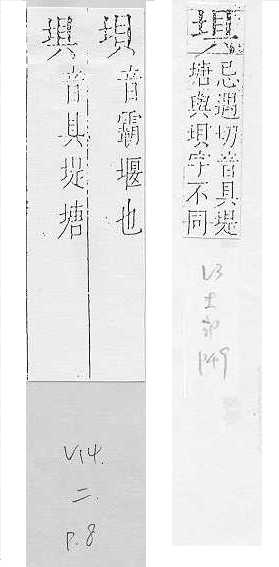 垻
音霸堰也
埧
音具堤塘
V14.
二.
P.8
埧
忌遇切音具堤
塘與垻字不同
V3
土部
P49